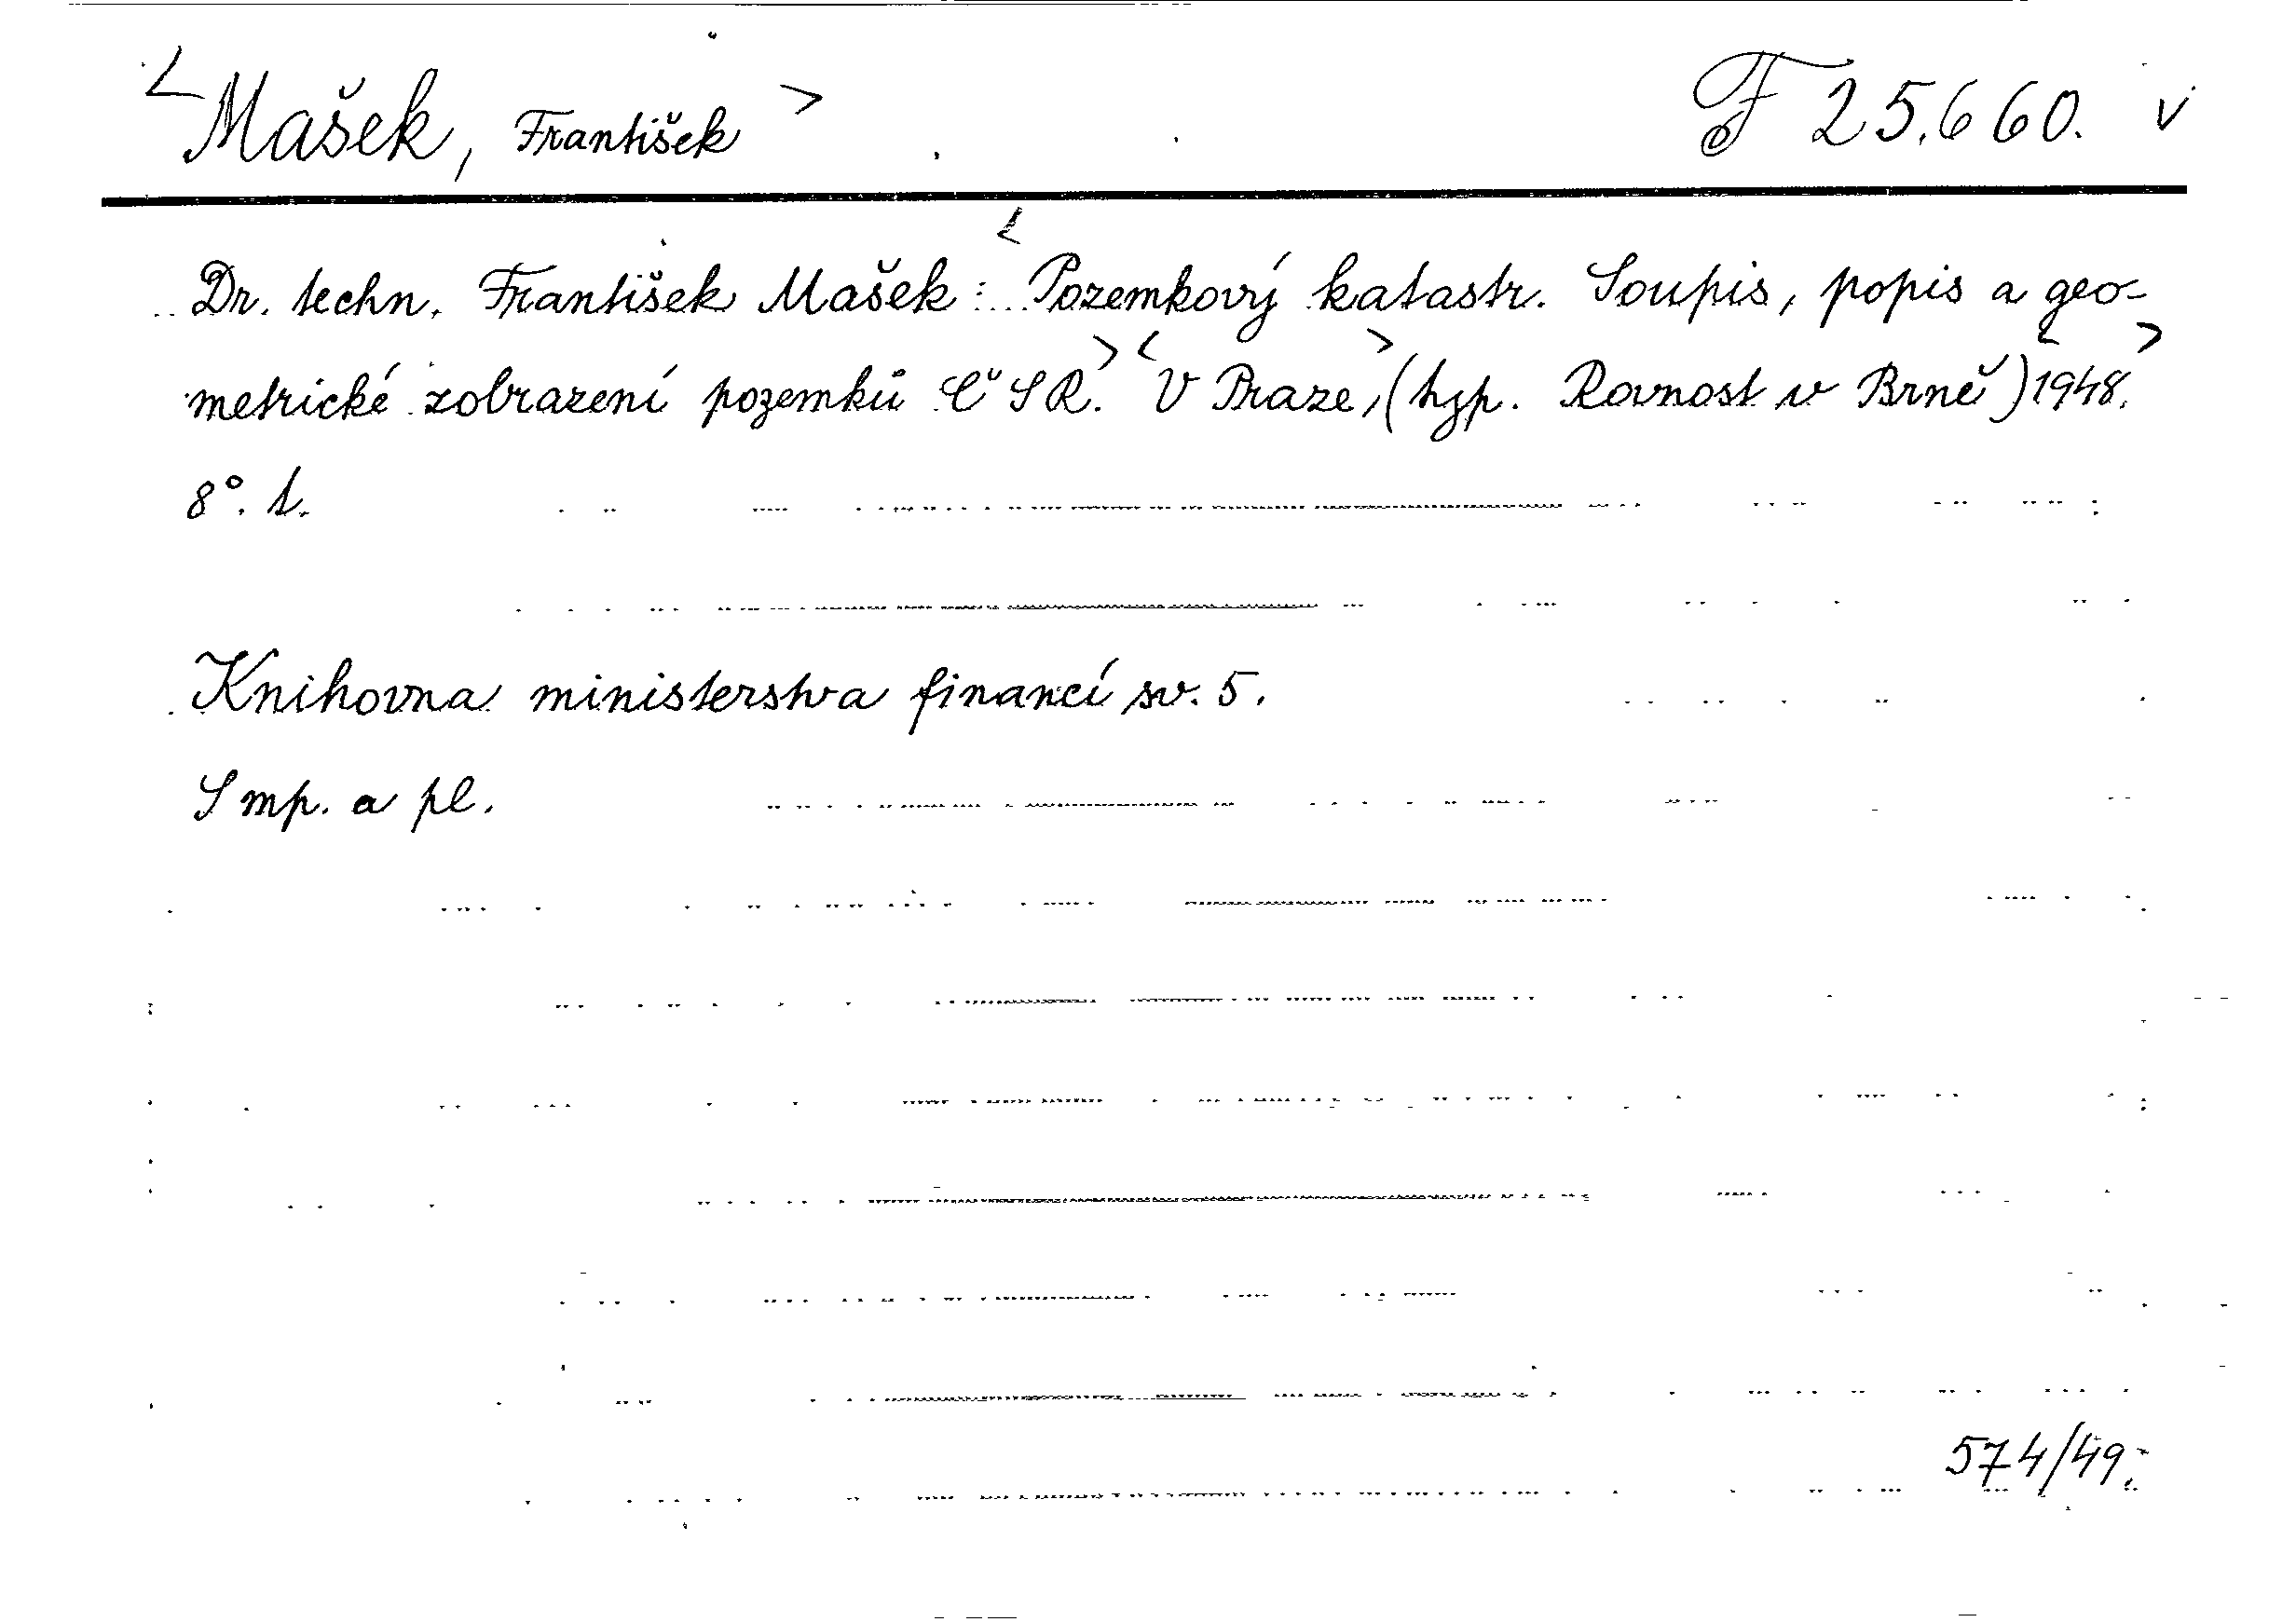 <Mašek, František> F 25.660. v
Dr. techn. František Mašek: <Pozemkový katastr. Soupis, popis a geo-
metrické zobrazení pozemků ČSR.> <V Praze,> (typ. Rovnost v Brně) <1948.>
8°. t.
Knihovna ministerstva financí sv. 5.
S mp. a pl.
574/49.